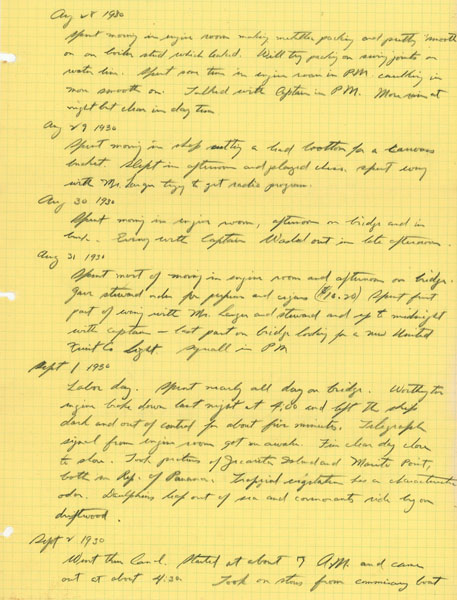 Aug 28 1930
Spent morning in engine room making metallic packing and putting smooth
on on boiler stud which leaked. Will try packing on swing joints on
water line. Spent some time in engine room in P.M. caulking in
more smooth on. Talked with Captain in P.M. More rain at
night but clear in day time
Aug 29 1930
Spent morning in shop putting a lead bottom for a canvas
bucket. Slept in afternoon and played chess. Spent evening
with Mr. trying to get radio program.
Aug 30 1930
Spent morning in engine room, afternoon on bridge and in
bunk. Evening with Captain. Washed out in late afternoon.
Aug 31 1930
Spent most of morning in engine room and afternoon on bridge.
Gave steward order for perfume and cigars ($16.20) Spent first
part of evening with Mr. and steward and up to midnight
with captain – last part on bridge looking for a new United
Fruit Co light. Squall in P.M
Sept 1 1930
Labor day. Spent nearly all day on bridge. Worthington
engine broke down last night at 9:00 and left the ship
dark and out of control for about five minutes. Telegraph
signal from engine room got me awake. Fine clear day close
to shore. Took pictures of Jicarita Island and Mariato Point,
both in Rep. of Panama. Tropical vegetation has a characteristic
odor. Dauphins leap out of sea and cormorants ride by on
driftwood.
Sept 2 1930
Went thru Canal. Started at about 7 A.M. and came
out at about 4:30. Took on stores from commissary boat